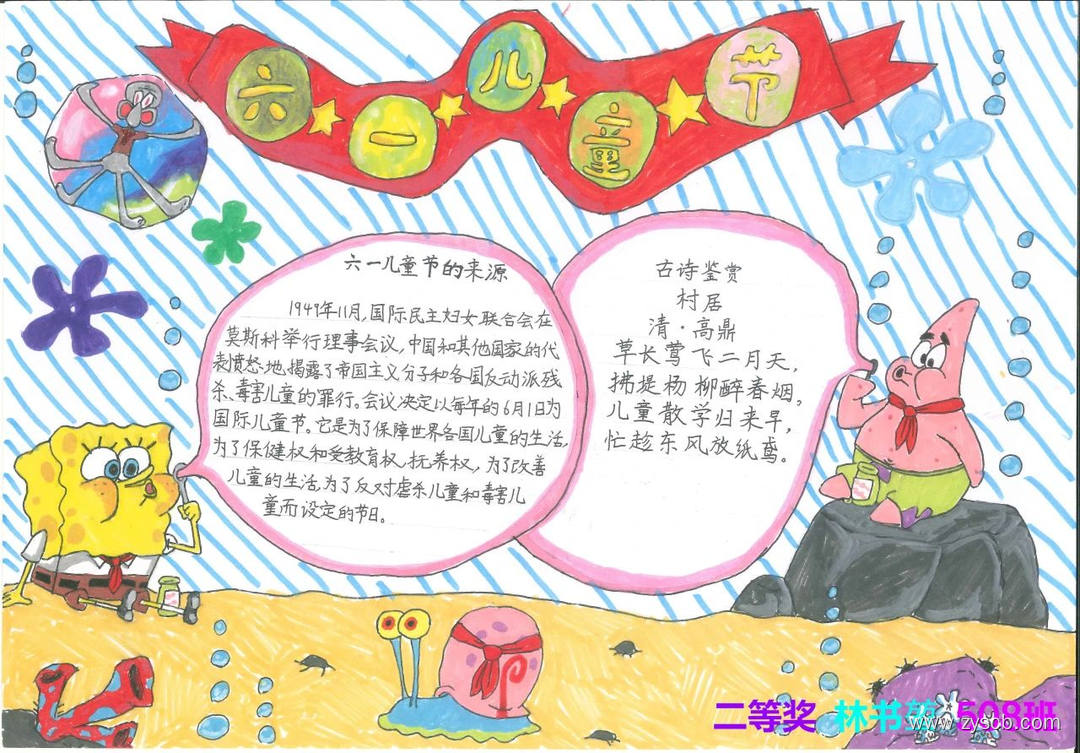 六一儿童节
六一儿童节的来源
1949年11月,国际民主妇女联合会在
莫斯科举行理事会议,中国和其他国家的代
表愤怒地,揭露了帝国主义分子和各国反动派残
杀、毒害儿童的罪行。会议决定以每年的6月1日为
国际儿童节。它是为了保障世界各国儿童的生活,
为了保健权和受教育权,抚养权,为了改善
儿童的生活,为了反对虐杀儿童和毒害儿
童而设定的节日。
古诗鉴赏
村居
清·高鼎
草长莺飞二月天,
拂堤杨柳醉春烟。
儿童散学归来早,
忙趁东风放纸鸢。
二等奖 林书 508班
www.zyscb.com